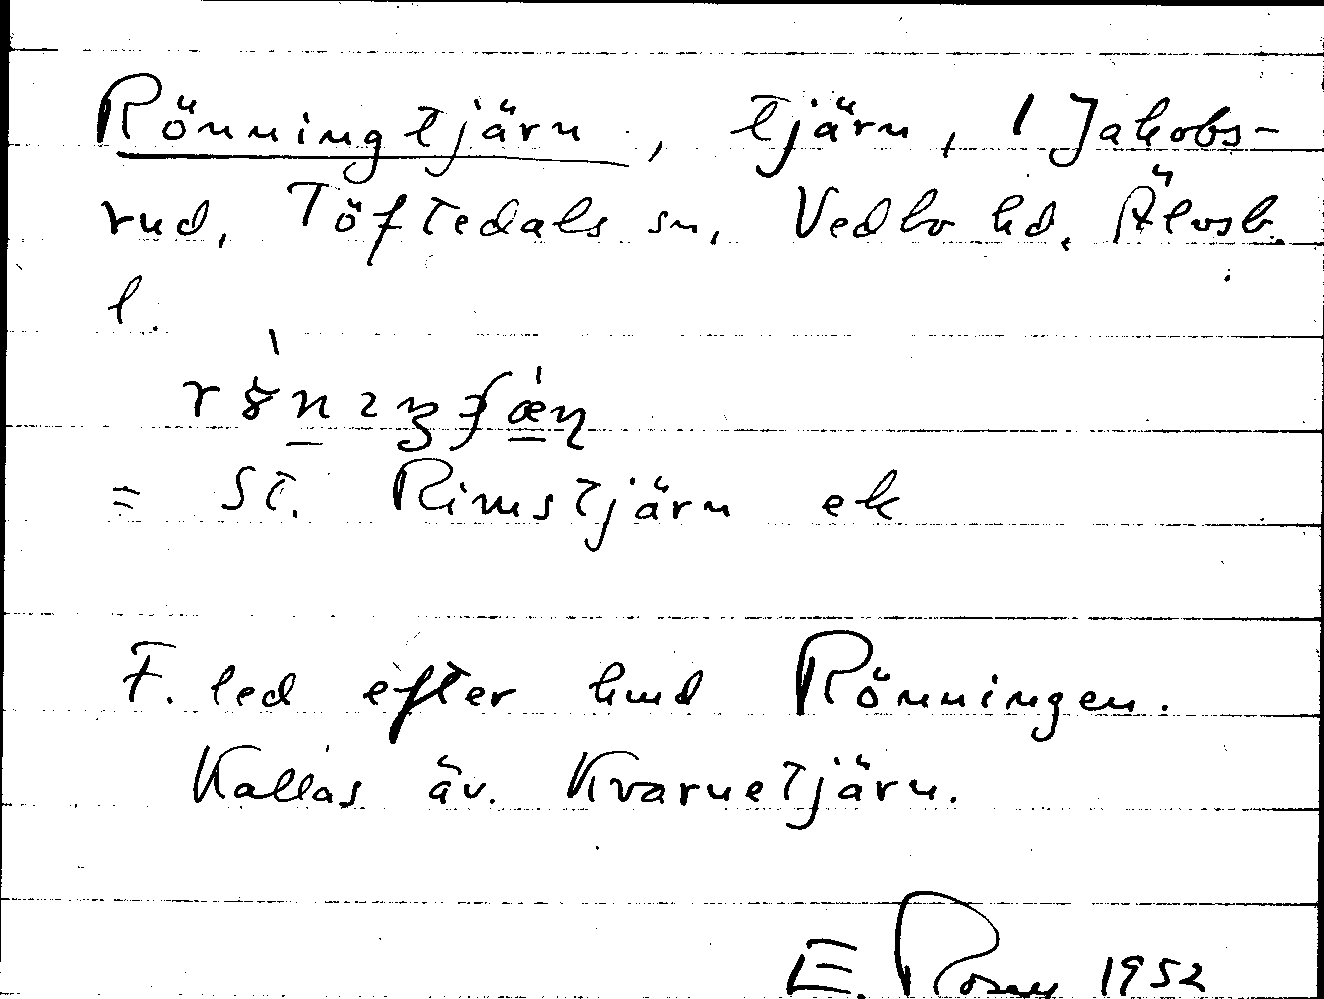 Rönningtjärn, tjärn, 1 Jakobs-
rud, Töftedals sn, Vedbo hd, Älvsb.
l.
= St. Rimstjärn ek
F. led efter hmd Rönningen.
Kallas äv. Kvarnetjärn.
E. 1952